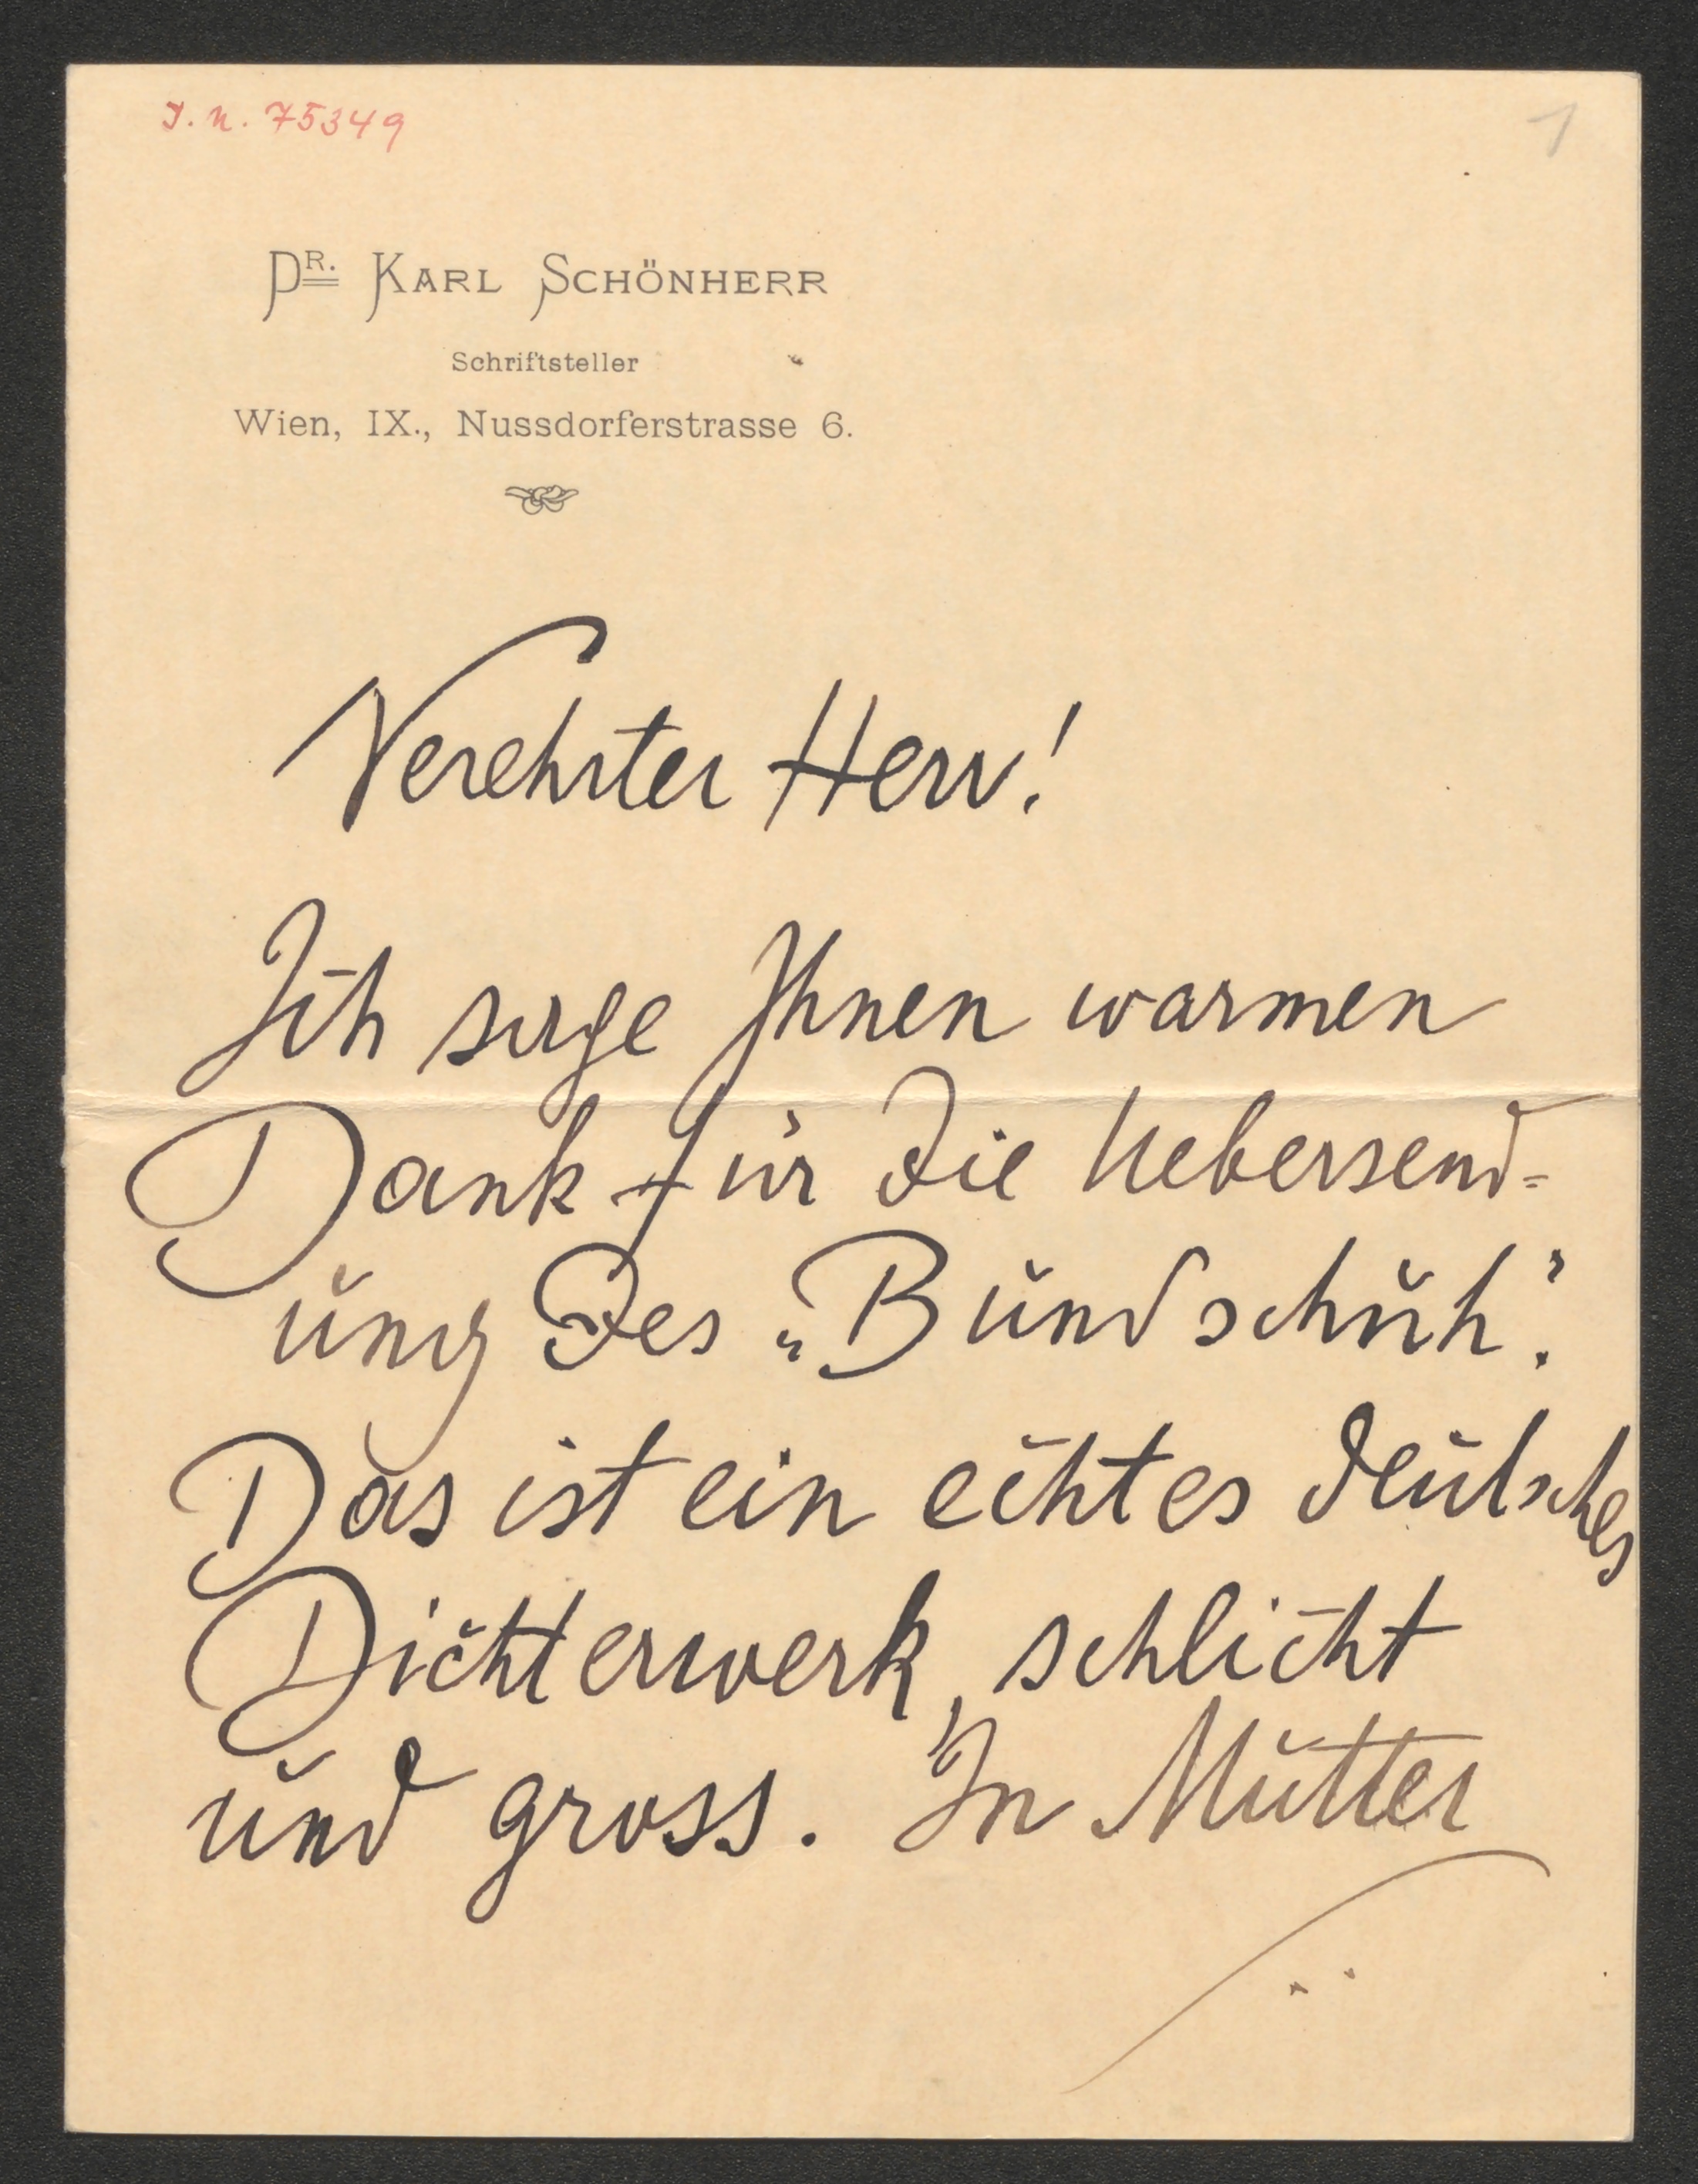 J.N. 75349
1
DR. KARL SCHÖNHERR
Schriftsteller
Wien, IX., Nussdorferstrasse 6.
Verehrter Herr!
Ich sage Ihnen warmen
Dank für die Uebersend=
ung des „Bundschuh“.
Das ist ein echtes deutsches
Dichterwerk, schlicht
und gross. In Mutter